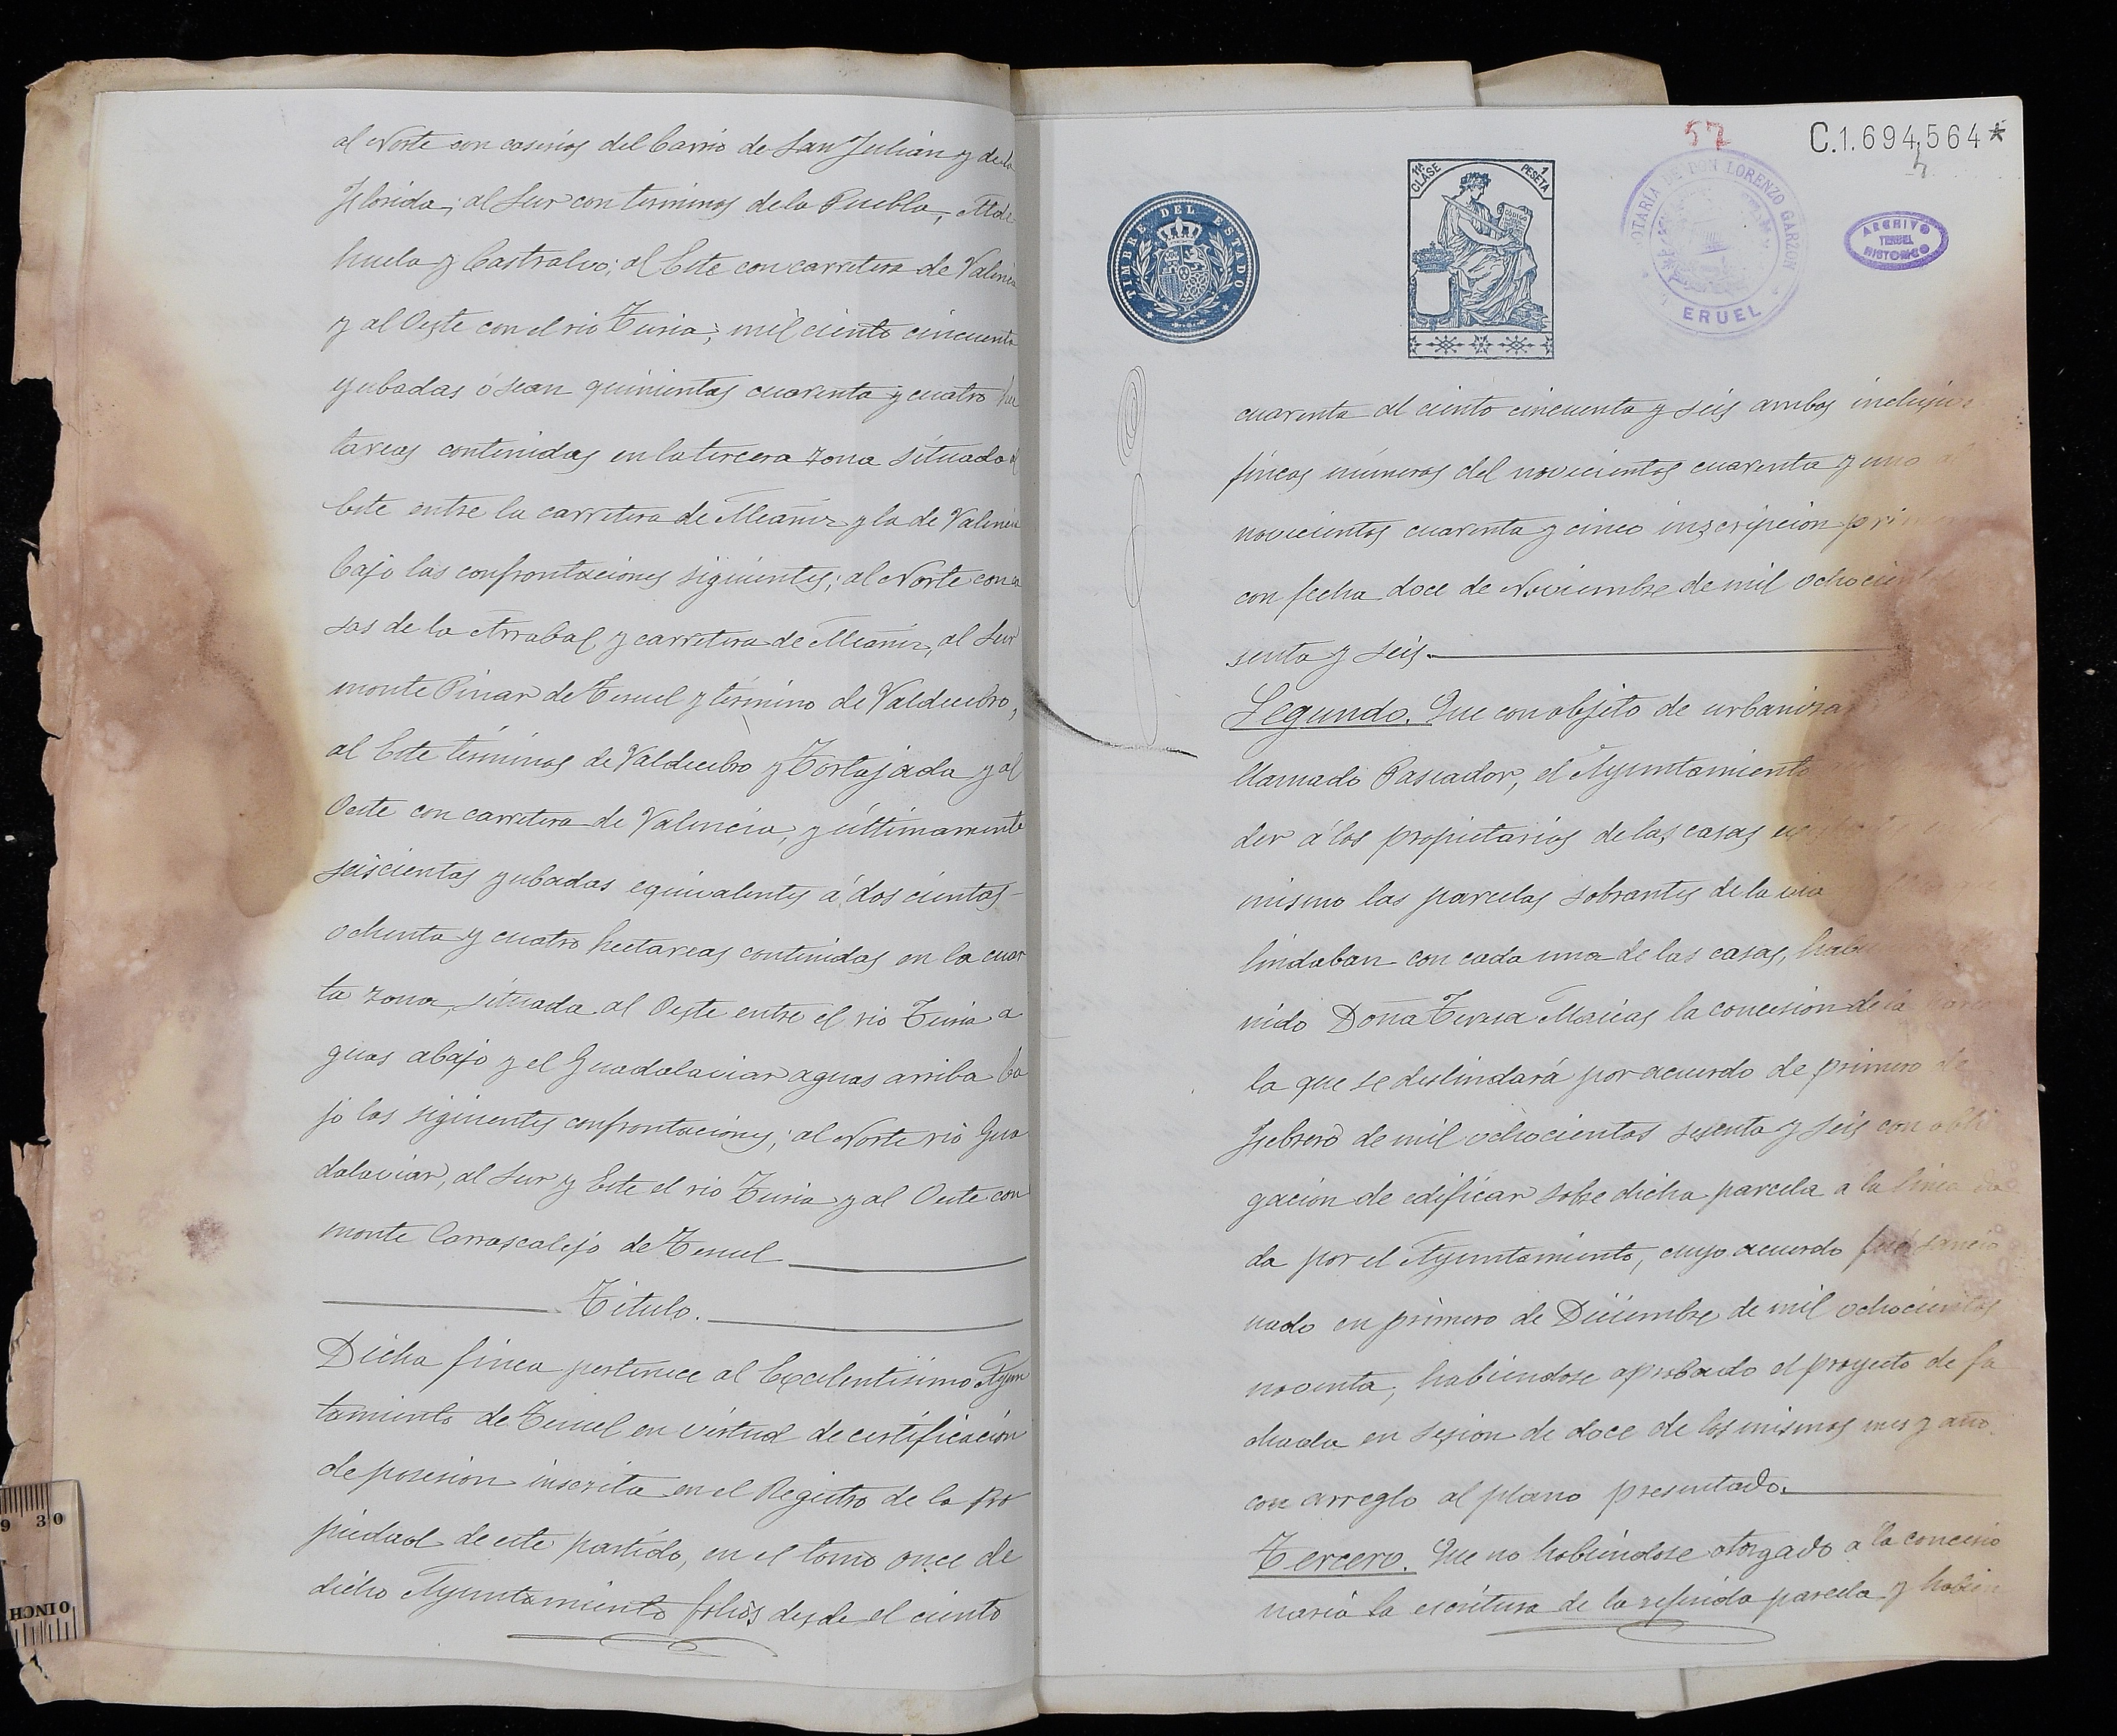 al Norte con caserios del Barrio de San Julian y de la
Florida; al Sur con terminos de la Puebla,
huela y Castralvo; al Este con carretera de Valencia
y al Oeste con el rio Turia; mil ciento cincuenta
yubadas ó sean quinientas cuarenta y cuatro hec
tareas contenidas en la tercera zona situada al
Este entre la carretera de Alcañiz y la de Valencia
bajo las confrontaciones siguientes; al Norte con ca
sas de la Arrabal y carretera de Alcañiz, al Sur
monte Pinar de Teruel y término de Valdecebro,
al Este términos de Valdecebro y Tortajada y al
Oeste con carretera de Valencia, y últimamente
seiscientas yubadas equivalentes á dos cientas
ochenta y cuatro hectareas contenidas en la cuar
ta zona, situada al Oeste entre el rio Turia a
guas abajo y el Guadalaviar aguas arriba ba
jo las siguientes confrontaciones; al Norte rio Gua
dalaviar, al Sur y Este el rio Turia y al Oeste con
monte Carrascalejo de Teruel
Titulo.
Dicha finca pertenece al Excelentisimo Ayun
tamiento de Teruel en virtud de certificación
de posesion inscrita en el Registro de la Pro
piedad de este partido, en el tomo once de
dicho Ayuntamiento folios desde el ciento
57
C.1.694,564*
TIMBRE DEL ESTADO
11ª CLASE
1 PESETA
NOTARÍA DE DON LORENZO GARZON
TERUEL
ARCHIVO
TERUEL
HISTORICO
cuarenta al ciento cincuenta y seis ambos inclusive
fincas números del novecientos cuarenta y uno al
novecientos cuarenta y cinco inscripcion prim
con fecha doce de Noviembre de mil ochocient
senta y seis.
Segundo. Que con objeto de urbanizar
llamado Paseador, el Ayuntamiento
der á los propietarios de las casas
mismo las parcelas sobrantes de la via
lindaban con cada una de las casas, habi
nido Doña Teresa Macias la concesion de la parce
la que se deslindará por acuerdo de primero de
Febrero de mil ochocientos sesenta y seis con obli
gación de edificar sobre dicha parcela a la linea da
da por el Ayuntamiento, cuyo acuerdo fué sancio
nado en primero de Diciembre de mil ochocientos
noventa; habiendose aprobado el proyecto de fa
chada en sesion de doce de los mismos mes y año.
con arreglo al plano presentado.
Tercero. Que no habiendose otorgado a la concesio
naria la escritura de la referida parcela y habien